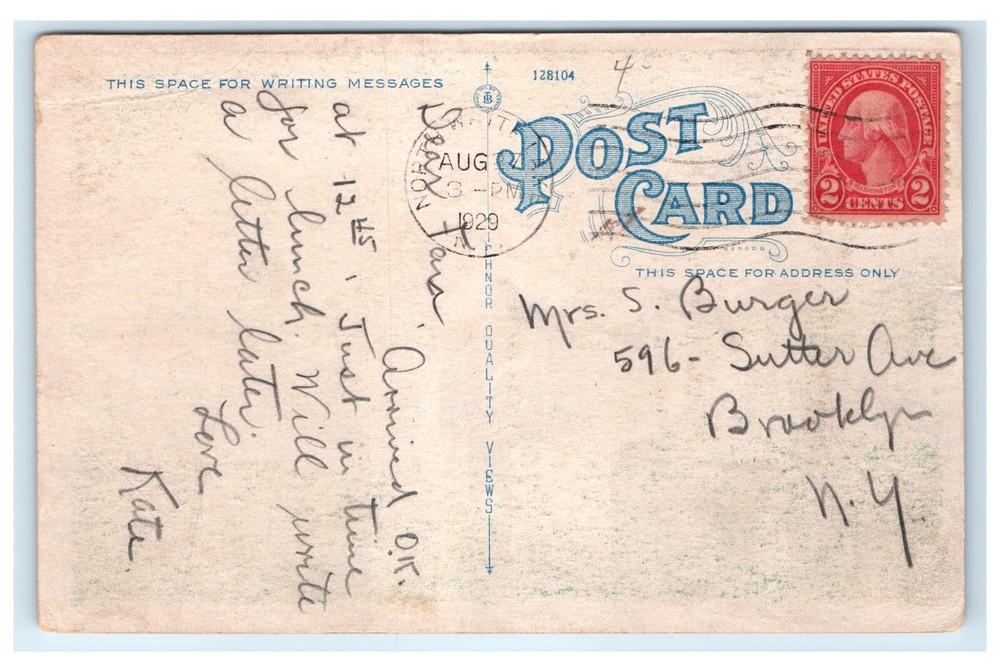 THIS SPACE FOR WRITING MESSAGES
128104
4
POST
CARD
UNITED STATES POSTAGE
WASHINGTON
2 CENTS 2
AUG
3-PM
1929
THIS SPACE FOR ADDRESS ONLY
TICHNOR QUALITY VIEWS
Mrs. S. Burger
596- Sutter Ave
Brooklyn
N.Y.
Dear
Arrived O.K.
at 12 45, Just in time
for lunch. Will write
a letter later.
Love
Kate.